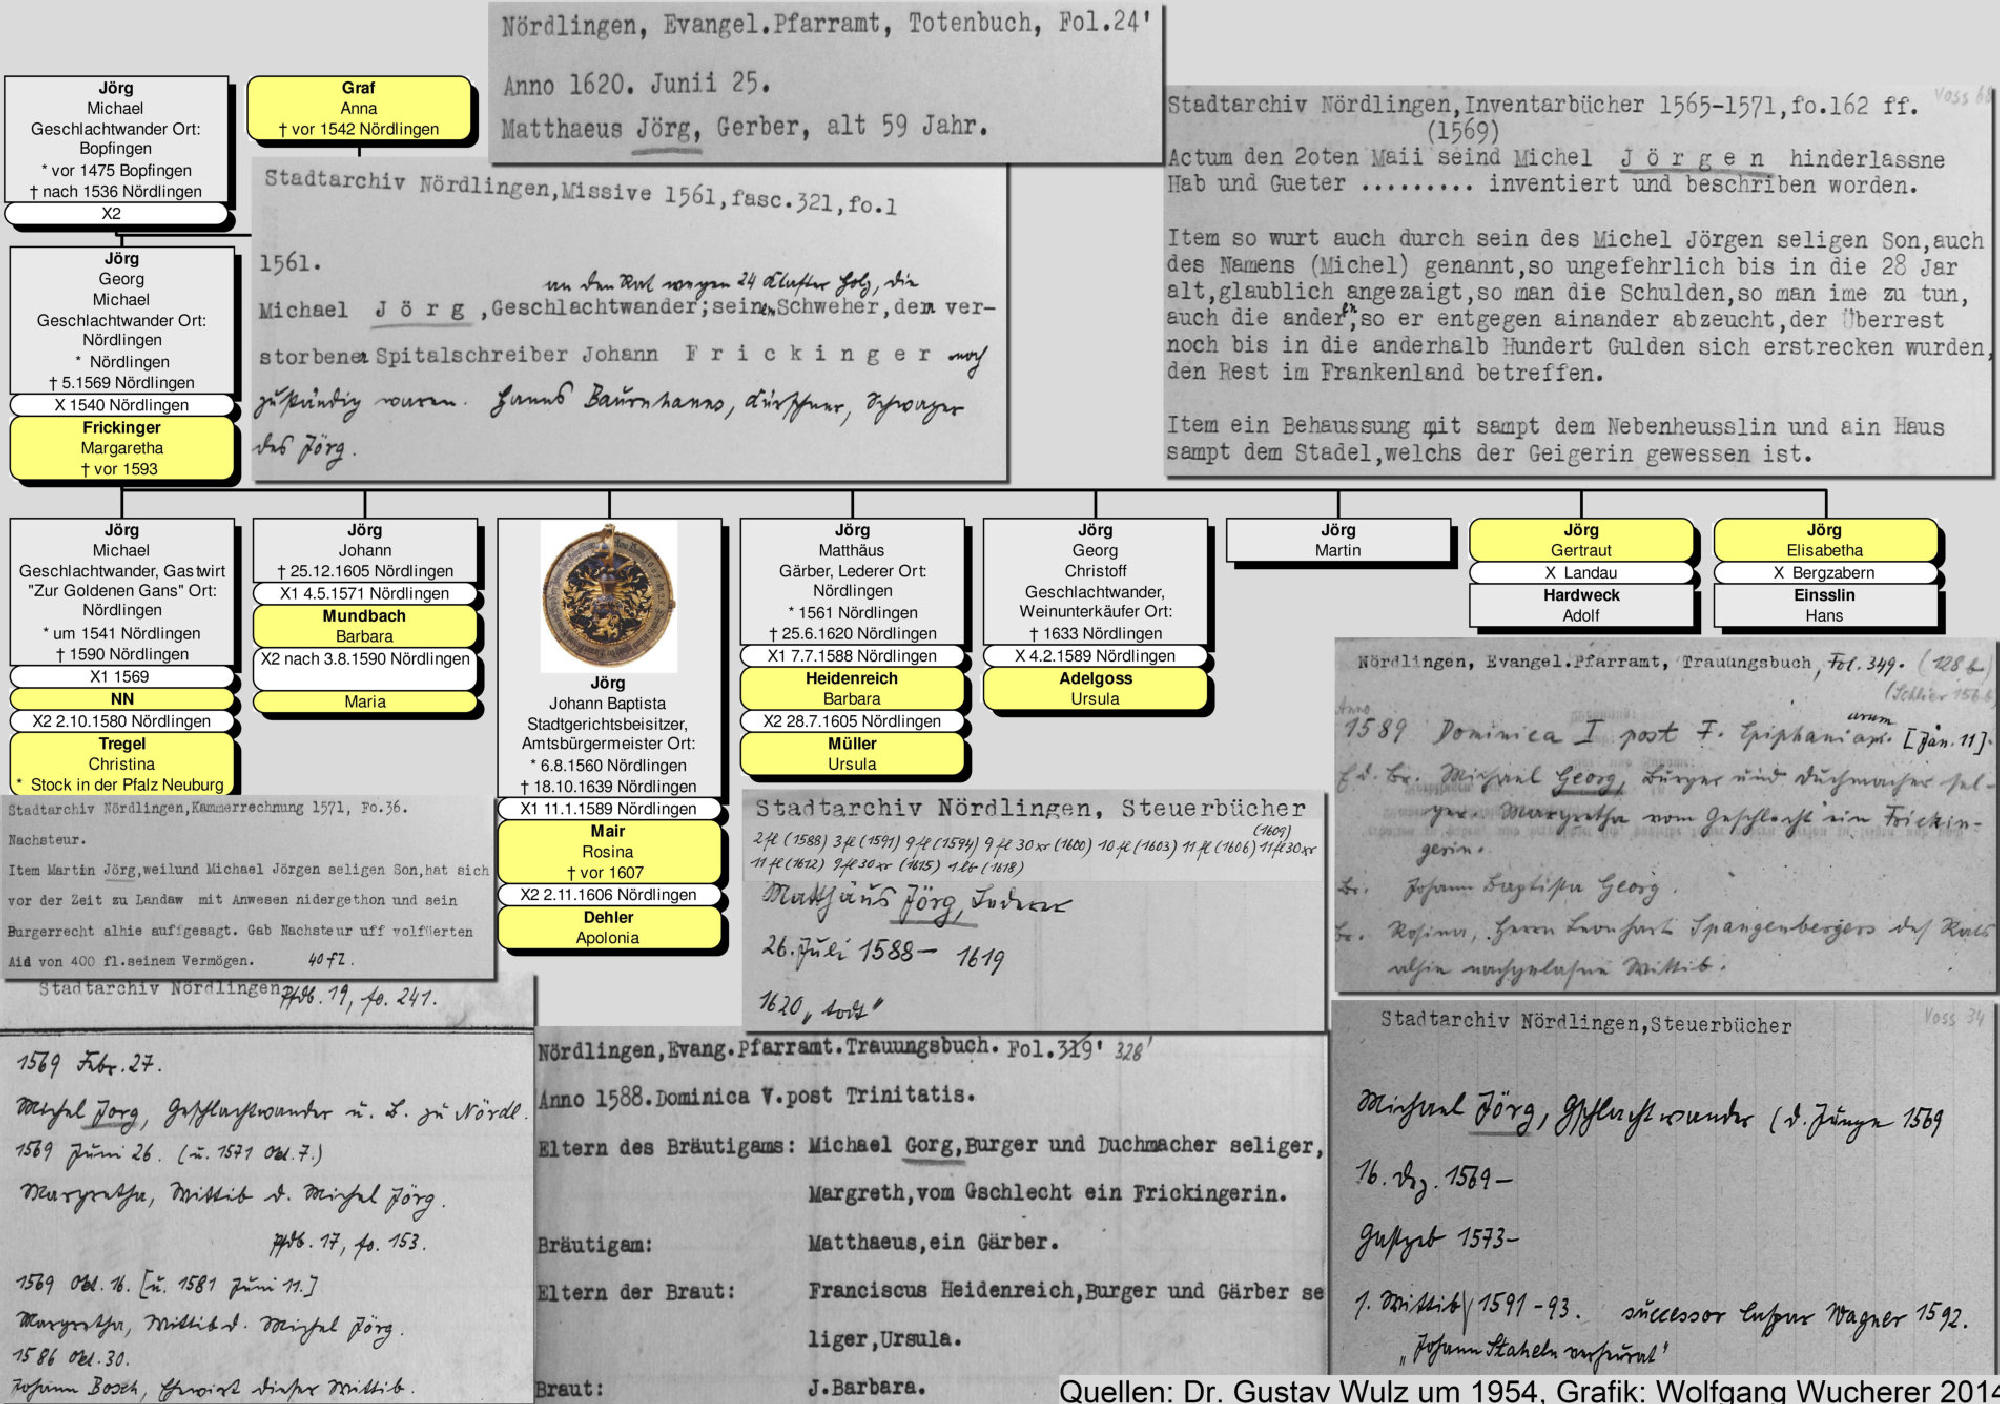 Nördlingen, Evangel.Pfarramt, Totenbuch, Fol.24'
Anno 1620. Junii 25.
Matthaeus Jörg, Gerber, alt 59 Jahr.
Jörg
Michael
Geschlachtwander Ort:
Bopfingen
* vor 1475 Bopfingen
† nach 1536 Nördlingen
X2
Graf
Anna
† vor 1542 Nördlingen
Jörg
Georg
Michael
Geschlachtwander Ort:
Nördlingen
* Nördlingen
† 5.1569 Nördlingen
X 1540 Nördlingen
Frickinger
Margaretha
† vor 1593
Stadtarchiv Nördlingen,Missive 1561,fasc.321,fo.1
1561.
an den Rat wegen 24 Klafter Holz, die
Michael Jörg,Geschlachtwander;seinen Schweher,dem ver-
storbenen Spitalschreiber Johann Frickinger noch
zuständig waren. Hanns Baurnhanns, Kürschner, Schwager
des Jörg.
Voss 68
Stadtarchiv Nördlingen,Inventarbücher 1565-1571,fo.162 ff.
(1569)
Actum den 20ten Maii seind Michel Jörgen hinderlassne
Hab und Gueter ......... inventiert und beschriben worden.
Item so wurt auch durch sein des Michel Jörgen seligen Son,auch
des Namens (Michel) genannt,so ungefehrlich bis in die 28 Jar
alt,glaublich angezaigt,so man die Schulden,so man ime zu tun,
auch die andern,so er entgegen ainander abzeucht,der Überrest
noch bis in die anderhalb Hundert Gulden sich erstrecken wurden,
den Rest im Frankenland betreffen.
Item ein Behaussung mit sampt dem Nebenheusslin und ain Haus
sampt dem Stadel,welchs der Geigerin gewessen ist.
Jörg
Michael
Geschlachtwander, Gastwirt
"Zur Goldenen Gans" Ort:
Nördlingen
* um 1541 Nördlingen
† 1590 Nördlingen
X1 1569
NN
X2 2.10.1580 Nördlingen
Tregel
Christina
* Stock in der Pfalz Neuburg
Jörg
Johann
† 25.12.1605 Nördlingen
X1 4.5.1571 Nördlingen
Mundbach
Barbara
X2 nach 3.8.1590 Nördlingen
Maria
Jörg
Johann Baptista
Stadtgerichtsbeisitzer,
Amtsbürgermeister Ort:
* 6.8.1560 Nördlingen
† 18.10.1639 Nördlingen
X1 11.1.1589 Nördlingen
Mair
Rosina
† vor 1607
X2 2.11.1606 Nördlingen
Dehler
Apolonia
Jörg
Matthäus
Gärber, Lederer Ort:
Nördlingen
* 1561 Nördlingen
† 25.6.1620 Nördlingen
X1 7.7.1588 Nördlingen
Heidenreich
Barbara
X2 28.7.1605 Nördlingen
Müller
Ursula
Jörg
Georg
Christoff
Geschlachtwander,
Weinunterkäufer Ort:
† 1633 Nördlingen
X 4.2.1589 Nördlingen
Adelgoss
Ursula
Jörg
Martin
Jörg
Gertraut
X Landau
Hardweck
Adolf
Jörg
Elisabetha
X Bergzabern
Einsslin
Hans
Stadtarchiv Nördlingen,Kammerrechnung 1571, Fo.36.
Nachsteur.
Item Martin Jörg,weilund Michael Jörgen seligen Son,hat sich
vor der Zeit zu Landaw mit Anwesen nidergethon und sein
Burgerrecht alhie auffgesagt. Gab Nachsteur uff volfüerten
Aid von 400 fl.seinem Vermögen. 40 fl.
Stadtarchiv Nördlingen Pfdb. 19, fo. 241.
1569 Febr. 27.
Michel Jorg, Geschlachtwander u. B. zu Nördl.
1569 Juni 26. (u. 1571 Okt. 7.)
Margretha, Wittib d. Michel Jörg.
Pfdb. 17, fo. 153.
1569 Okt. 16. [u. 1581 Juni 11.]
Margretha, Wittib d. Michel Jörg.
1586 Okt. 30.
Johann Bosch, Ehewirt dieser Wittib.
Stadtarchiv Nördlingen, Steuerbücher
(1609)
2 fl (1588) 3 fl (1591) 9 fl (1594) 9 fl 30 xr (1600) 10 fl (1603) 11 fl (1606) 11 fl 30 xr
11 fl (1612) 9 fl 30 xr (1615) 1 lb (1618)
Matthäus Jörg, Lederer
26. Juli 1588 – 1619
1620 „todt"
Nördlingen,Evang.Pfarramt.Trauungsbuch. Fol.319' 328'
Anno 1588.Dominica V.post Trinitatis.
Eltern des Bräutigams: Michael Gorg,Burger und Duchmacher seliger,
Margreth,vom Gschlecht ein Frickingerin.
Bräutigam: Matthaeus,ein Gärber.
Eltern der Braut: Franciscus Heidenreich,Burger und Gärber se
liger,Ursula.
Braut: J.Barbara.
Nördlingen, Evangel.Pfarramt, Trauungsbuch, Fol. 349. (128 b)
Anno
1589 Dominica I post F. Epiphaniarum [Jän. 11].
E. d. Br. Michael Georg, Burger und Duchmacher sel-
ger. Margretha vom Geschlecht ein Frickin-
gerin.
Br. Johann Baptista Georg.
Br. Rosina, Herrn Leonhart Spangenbergers des Rats
alhie nachgelassne Wittib.
Stadtarchiv Nördlingen,Steuerbücher
Voss 34
Michael Jörg, Gschlachtwander (d. Junge 1569
16. Dez. 1569 –
Gastgeb 1573 –
1. Wittib 1591 - 93. successor Caspar Wagner 1592.
„Johann Staheln verheurat"
Quellen: Dr. Gustav Wulz um 1954, Grafik: Wolfgang Wucherer 2014